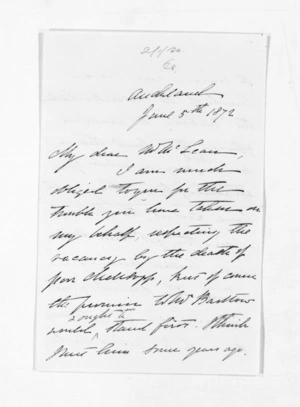 Auckland
June 5th 1872
My dear Mr McLean,
I am much
obliged to you for the
trouble you have taken on
my behalf, respecting the
vacancy by the death of
poor but of course
the promise to Mr Barstow
ought to
stand first. I think
some years ago.